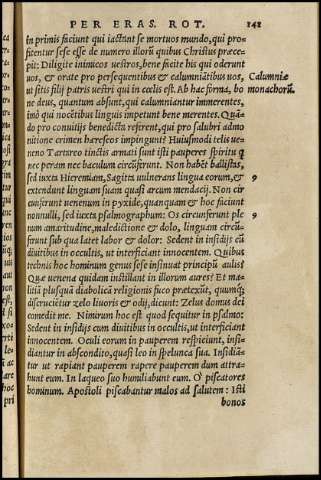 PER ERAS. ROT. 141
in primis faciunt qui iactant se mortuos mundo, qui pro-
ficentur sese esse de numero illorũ quibus Christus præce-
pit: Diligite inimicos uestros, bene facite his qui oderunt
uos, & orate pro persequentibus & calumniãtibus uos,
Calumniæ
ut sitis filij patris uestri qui in cœlis est. Ab hac forma, bo
monachorũ.
ne deus, quantum absunt, qui calumniantur immerentes,
imò qui nocẽtibus linguis impetunt bene merentes. Quã-
do pro conuitijs benedicta referent, qui pro salubri admo
nitione crimen hæreseos impingunt? Huiusmodi telis ue-
neno Tartareo tinctis armati sunt isti pauperes spiritu q
nec peram nec baculum circũferunt. Non habẽt balistas,
sed iuxta Hieremiam, Sagitta uulnerans lingua eorum, &
9
extendunt linguam suam quasi arcum mendacij. Non cir
cunferunt uenenum in pyxide, quanquam & hoc faciunt
nonnulli, sed iuxta psalmographum: Os circunferunt ple
9
num amaritudine, maledictione & dolo, linguam circũ-
ferunt sub qua latet labor & dolor: Sedent in insidijs cũ
diuitibus in occultis, ut interficiant innocentem. Quibus
technis hoc hominum genus sese insinuat principũ aulis?
Quæ uenena quidam instillant in illorum aures? Et ma-
litiã plusquã diabolicã religionis fuco prætexũt, quumq;
disrucietur zelo liuoris & odij, dicunt: Zelus domus dei
comedit me. Nimirum hoc est quod sequitur in psalmo:
Sedent in insidijs cum diuitibus in occultis, ut interficiant
innocentem. Oculi eorum in pauperem respiciunt, insi-
diantur in abscondito, quasi leo in spelunca sua. Insidiã-
tur ut rapiant pauperem rapere pauperem dum attra-
hunt eum. In laqueo suo humiliabunt eum. O' piscatores
hominum. Apostoli piscabantur malos ad salutem: Isti
bonos